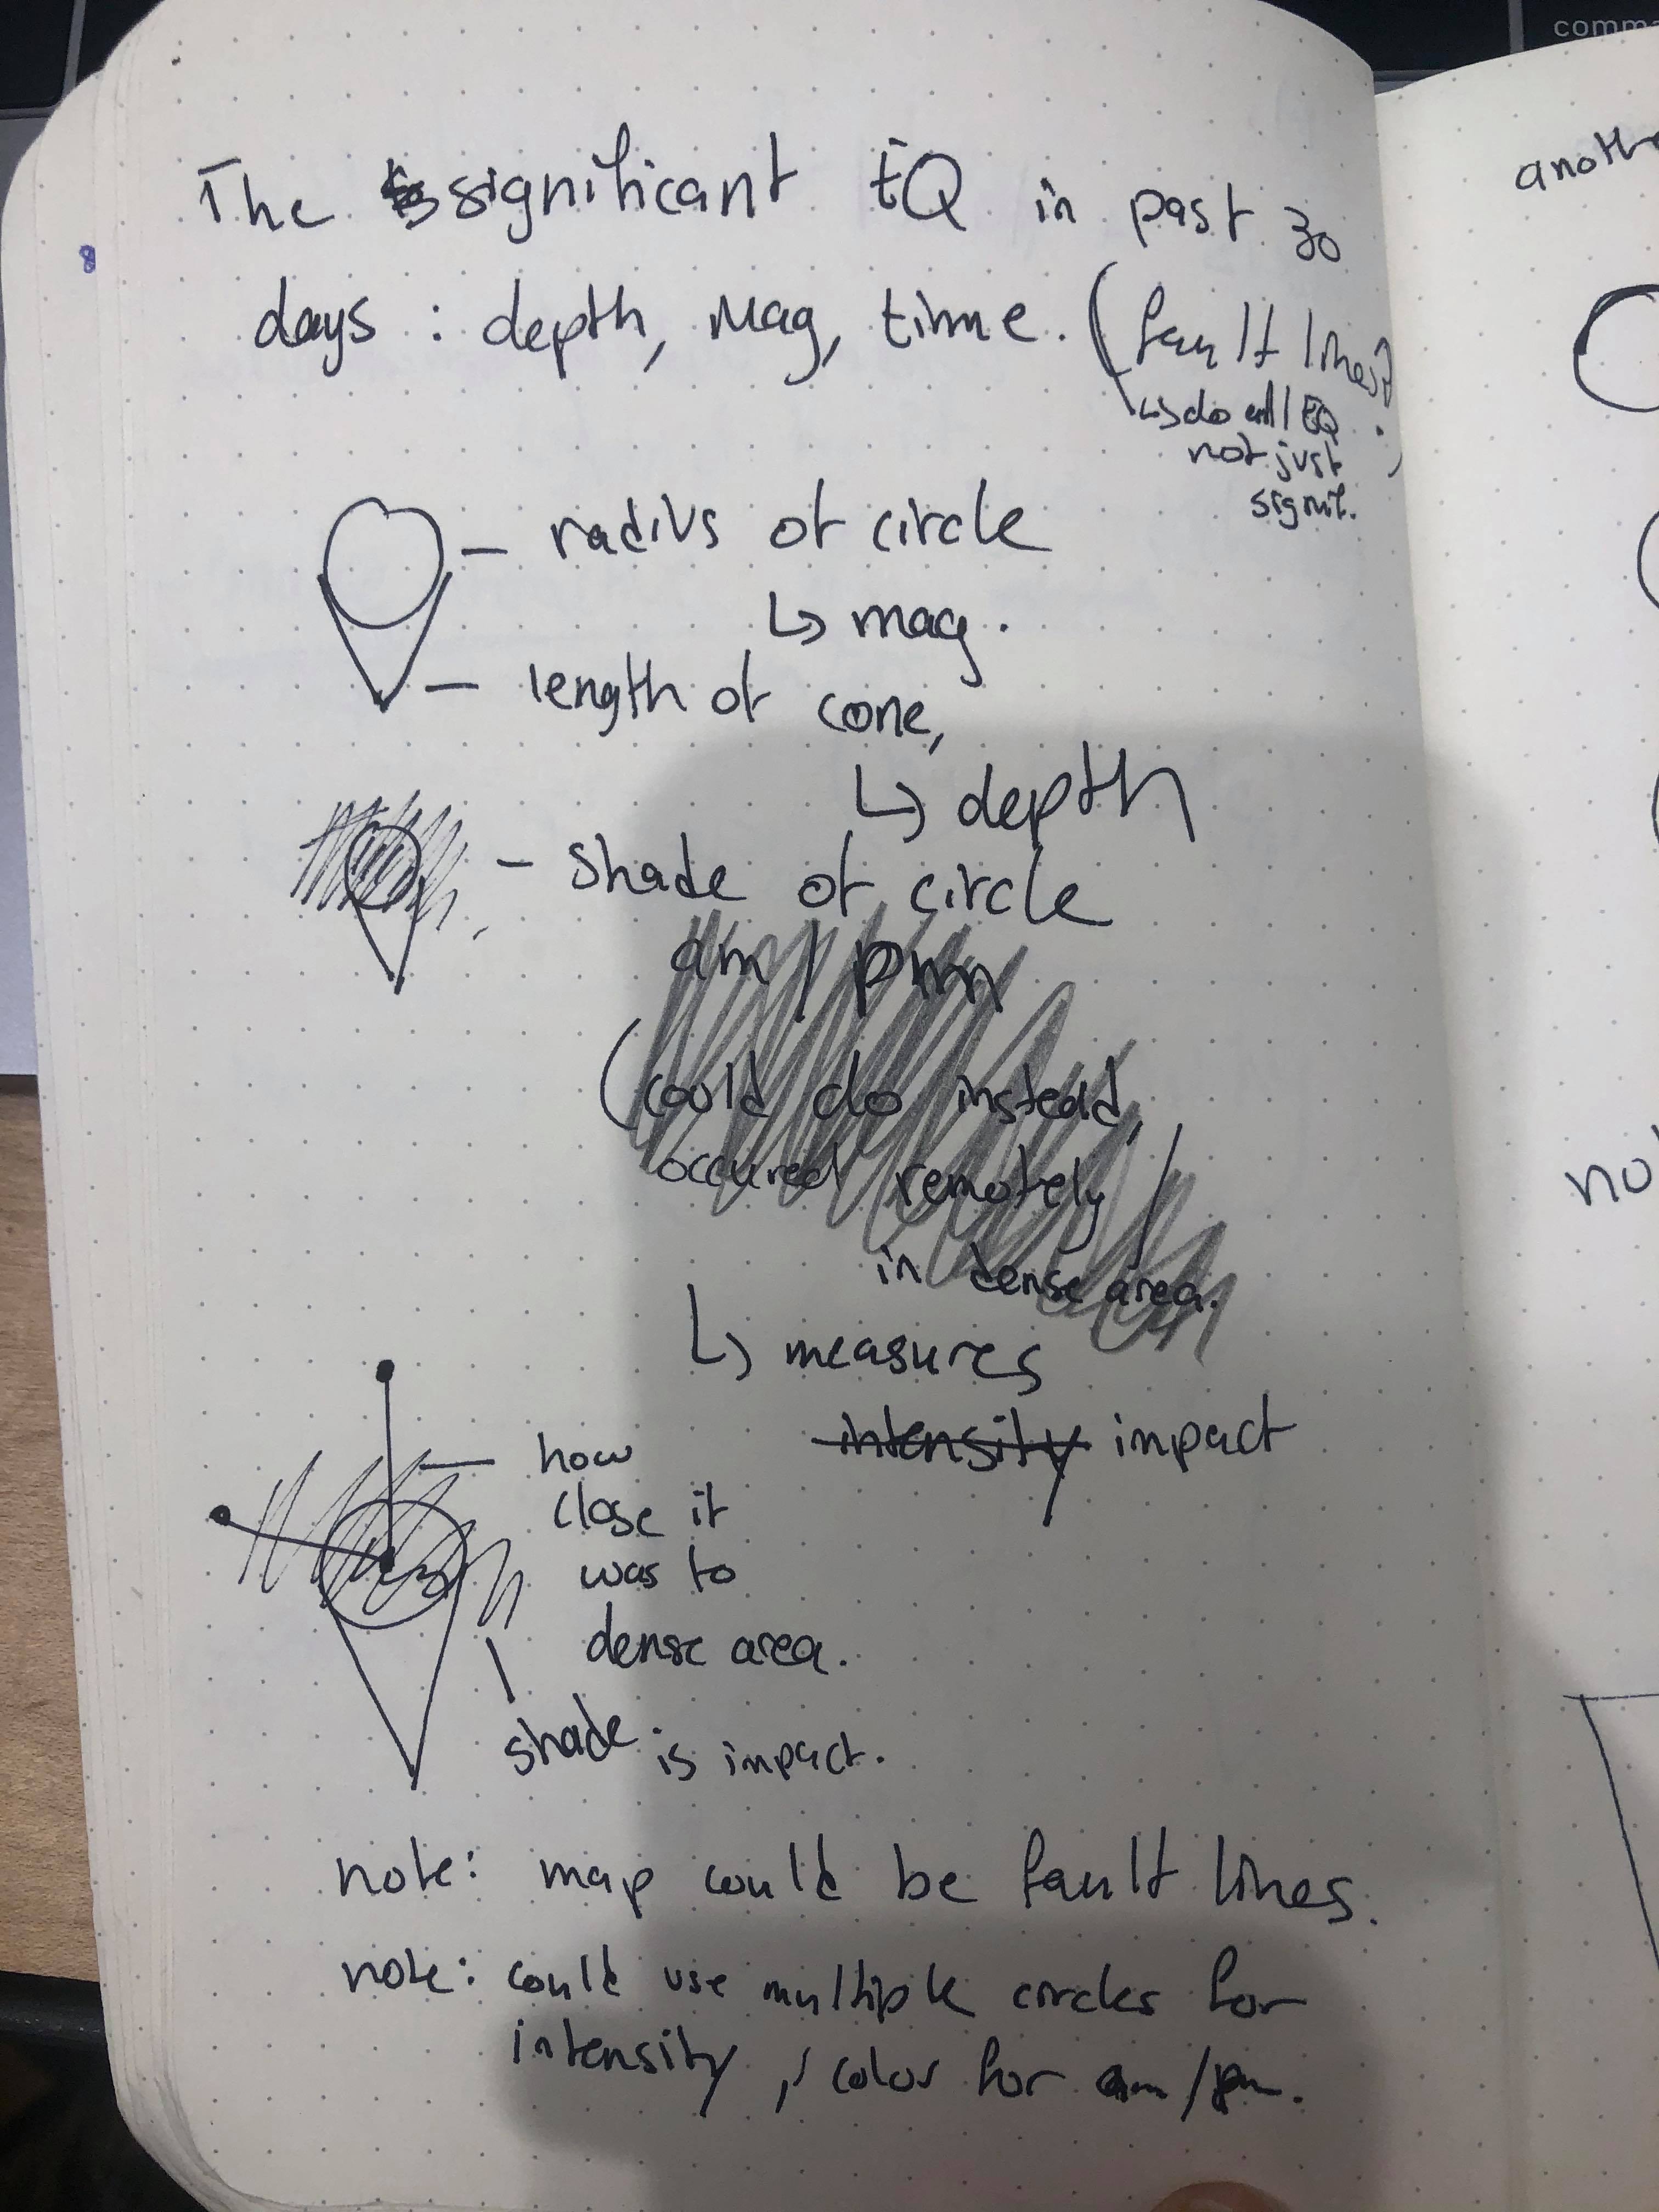 The significant EQ in past 30
days : depth, Mag, time. (fault lines?
↳ do all EQ
not just
signif.)
– radius of circle
↳ mag.
– length of cone,
↳ depth
– shade of circle
am / pm
(could do instead,
occured remotely /
in dense area.
↳ measures
intensity impact
how
close it
was to
dense area.
shade is impact.
note: map could be fault lines.
note: could use multiple circles for
intensity, / color for am/pm.
comma
anoth
no
8